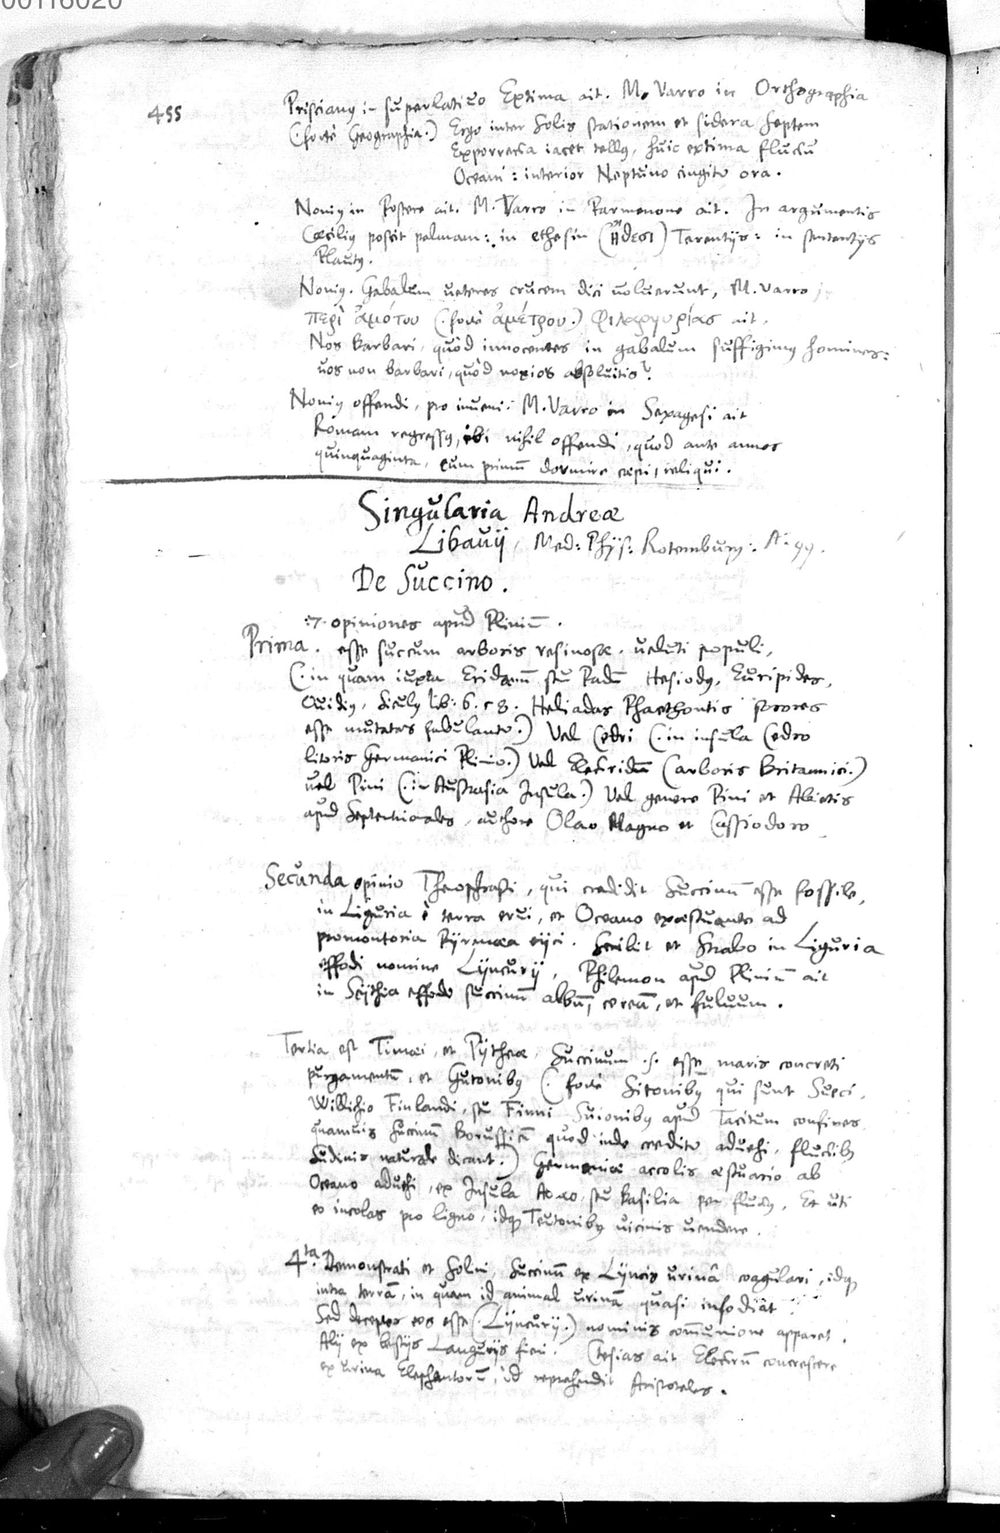 00116020
455
Priscianus in superlativo Extima ait. M. Varro in Orthographia
(: fortè Geographia.) Ergo inter Solis stationem et sidera septem
Exporrecta iacet tellus, huic extima fluctu
Oceani: interior Neptuno cingitur ora.
Nonius in Poscere ait. M. Varro in Parmenone ait. In argumentis
Cæcilius poscit palmam: in ethesin (ἤθεσι) Terentius: in sententijs
Plautus.
Nonius. Gabalum ueteres crucem dici uoluerunt, M. Varro
περὶ ἀμότου (: fortè ἀμέτρου.) Φιλαργυρίας ait.
Nos barbari, quòd innocentes in gabalum suffigimus homines:
uos non barbari, quòd noxios absoluitis?
Nonius offendi, pro inueni. M. Varro in Sexagesi ait
Romam regressus, ibi nihil offendi, quod ante annos
quinquaginta, cum primũ dormire cœpi, reliqui.
Singularia Andreæ
Libauij, Med: Phÿs: Rotemburg: Aº 99.
De Succino.
:7. opiniones apud Pliniũ.
Prima. esse succum arboris resinosæ. ueluti populi,
(: in quam iuxta Eridanũ seu Padũ Hesiodus, Euripides,
Ouidius, Siculus lib: 6. c 8. Heliadas Phaethontis sorores
esse mutatas fabulantur.) Vel Cedri (: in insula Cedro
litoris Germanici Plinio.) Vel Electridũ (arboris Britannici.)
uel Pini (: in Austrasia Insula.) Vel genere Pini et Abietis
apud Septentrionales, authore Olao Magno et Cassiodoro
Secunda opinio Theophrasti, qui credidit Succinũ esse fossile,
in Liguria è terra erui, et Oceano exæstuante ad
promontoria Pÿrenæa eijci. Scribit et Strabo in Liguria
effodi nomine Lÿncurij, Philemon apud Pliniũ ait
in Scÿthia effodi succinũ albũ, cereũ, et fuluum.
Tertia est Timæi, et Pÿtheæ, Succinum .s. esse maris concreti
purgamentũ, et Gutonibus (: fortè Sitonibus qui sunt Sueci,
Willichio Finlandi, seu Finni Suionibus apud Tacitum confines
quamuis Succinũ Borussicũ quod inde creditur aduehi, fluctibus
Sudinis naturale dicant.) Germaniæ accolis æstuario ab
Oceano aduehi, ex Insula Abalo, seu Basilia per fluctus, Et uti
eo incolas pro ligno, idque Teutonibus uicinis uendere.
4ta. Demonstrati et Solini, Succinũ ex Lÿncis urinâ coagulari, idque
intra terrã, in quam id animal urinã quasi infodiat
Sed deceptos eos esse (: Lÿncurij.) nominis com̃unione apparet.
Alij ex bestijs Langurijs fieri. Ctesias ait Electrũ concrescere
ex urina Elephantorũ, id reprehendit Aristoteles.